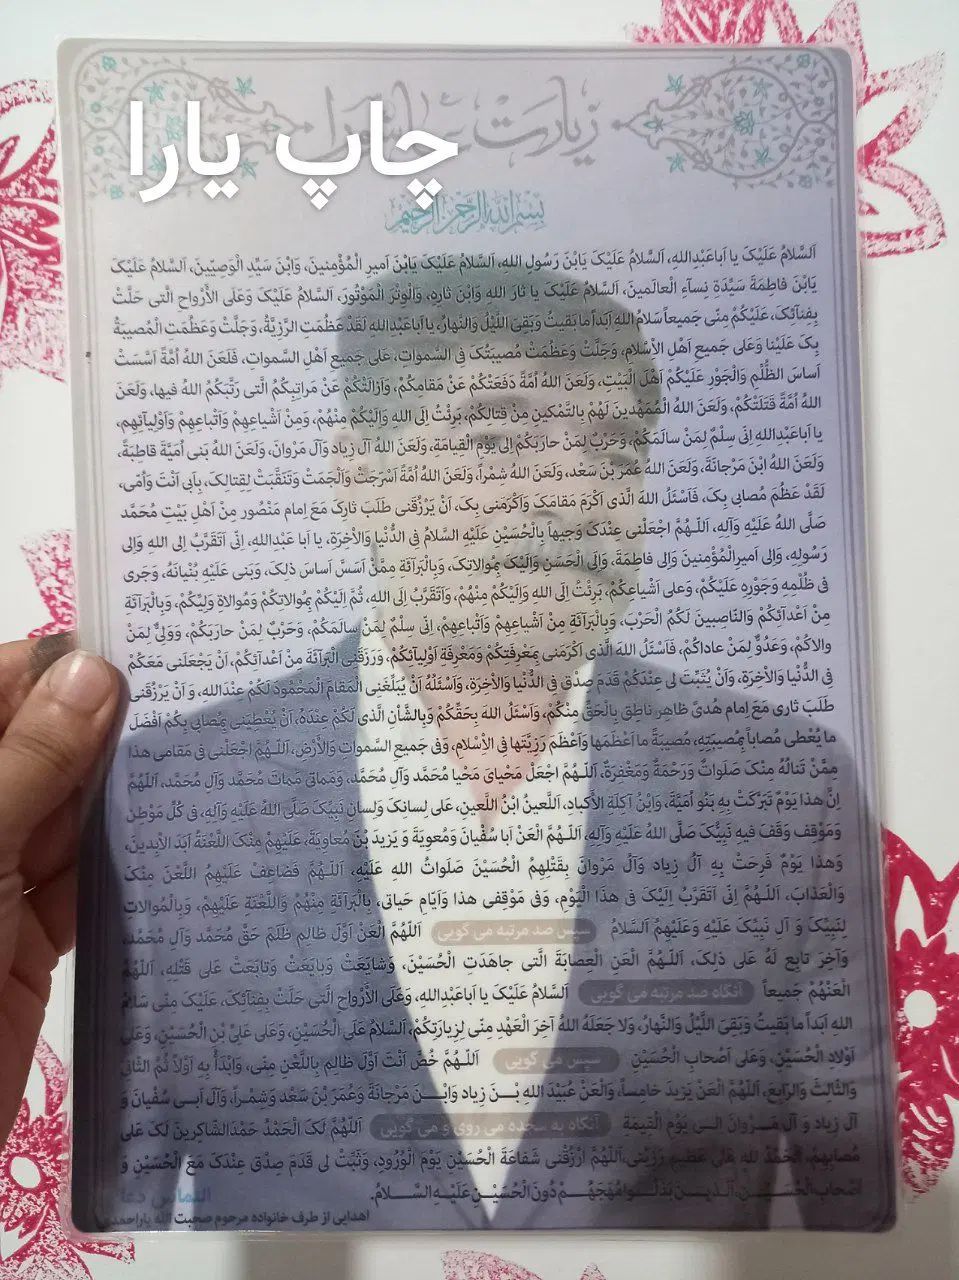 زیارت عاشورا
چاپ یارا
بسم الله الرحمن الرحیم
اَلسَّلامُ عَلَیْکَ یا اَباعَبْدِاللهِ، اَلسَّلامُ عَلَیْکَ یَابْنَ رَسُولِ اللهِ، اَلسَّلامُ عَلَیْکَ یَابْنَ اَمیرِ الْمُؤْمِنینَ، وَابْنَ سَیِّدِ الْوَصِیّینَ، اَلسَّلامُ عَلَیْکَ
یَابْنَ فاطِمَةَ سَیِّدَةِ نِسآءِ الْعالَمینَ، اَلسَّلامُ عَلَیْکَ یا ثارَ اللهِ وَابْنَ ثارِهِ، وَالْوِتْرَ الْمَوْتُورَ، اَلسَّلامُ عَلَیْکَ وَعَلَی الْأَرْواحِ الَّتی حَلَّتْ
بِفِنآئِکَ، عَلَیْکُمْ مِنّی جَمیعاً سَلامُ اللهِ اَبَداً ما بَقیتُ وَبَقِیَ اللَّیْلُ وَالنَّهارُ، یا اَباعَبْدِاللهِ لَقَدْ عَظُمَتِ الرَّزِیَّةُ، وَجَلَّتْ وَعَظُمَتِ الْمُصیبَةُ
بِکَ عَلَیْنا وَعَلی جَمیعِ اَهْلِ الْاِسْلامِ، وَجَلَّتْ وَعَظُمَتْ مُصیبَتُکَ فِی السَّمواتِ، عَلی جَمیعِ اَهْلِ السَّمواتِ، فَلَعَنَ اللهُ اُمَّةً اَسَّسَتْ
اَساسَ الظُّلْمِ وَالْجَوْرِ عَلَیْکُمْ اَهْلَ الْبَیْتِ، وَلَعَنَ اللهُ اُمَّةً دَفَعَتْکُمْ عَنْ مَقامِکُمْ، وَاَزالَتْکُمْ عَنْ مَراتِبِکُمُ الَّتی رَتَّبَکُمُ اللهُ فیها، وَلَعَنَ
اللهُ اُمَّةً قَتَلَتْکُمْ، وَلَعَنَ اللهُ الْمُمَهِّدینَ لَهُمْ بِالتَّمْکینِ مِنْ قِتالِکُمْ، بَرِئْتُ اِلَی اللهِ وَاِلَیْکُمْ مِنْهُمْ، وَمِنْ اَشْیاعِهِمْ وَاَتْباعِهِمْ وَاَوْلِیآئِهِم،
یا اَباعَبْدِاللهِ اِنّی سِلْمٌ لِمَنْ سالَمَکُمْ، وَحَرْبٌ لِمَنْ حارَبَکُمْ اِلی یَوْمِ الْقِیامَةِ، وَلَعَنَ اللهُ آلَ زِیاد وَآلَ مَرْوانَ، وَلَعَنَ اللهُ بَنی اُمَیَّةَ قاطِبَةً،
وَلَعَنَ اللهُ ابْنَ مَرْجانَةَ، وَلَعَنَ اللهُ عُمَرَ بْنَ سَعْد، وَلَعَنَ اللهُ شِمْراً، وَلَعَنَ اللهُ اُمَّةً اَسْرَجَتْ وَاَلْجَمَتْ وَتَنَقَّبَتْ لِقِتالِکَ، بِاَبی اَنْتَ وَاُمّی،
لَقَدْ عَظُمَ مُصابی بِکَ، فَاَسْئَلُ اللهَ الَّذی اَکْرَمَ مَقامَکَ وَاَکْرَمَنی بِکَ، اَنْ یَرْزُقَنی طَلَبَ ثارِکَ مَعَ اِمام مَنْصُور مِنْ اَهْلِ بَیْتِ مُحَمَّد
صَلَّی اللهُ عَلَیْهِ وَآلِهِ، اَللّهُمَّ اجْعَلْنی عِنْدَکَ وَجیهاً بِالْحُسَیْنِ عَلَیْهِ السَّلامُ فِی الدُّنْیا وَالْاخِرَةِ، یا اَبا عَبْدِاللهِ، اِنّی اَتَقَرَّبُ اِلی اللهِ وَاِلی
رَسُولِهِ، وَاِلی اَمیرِالْمُؤْمِنینَ وَاِلی فاطِمَةَ، وَاِلَی الْحَسَنِ وَاِلَیْکَ بِمُوالاتِکَ، وَبِالْبَرآئَةِ مِمَّنْ اَسَّسَ اَساسَ ذلِکَ، وَبَنی عَلَیْهِ بُنْیانَهُ، وَجَری
فی ظُلْمِهِ وَجَوْرِهِ عَلَیْکُمْ، وَعلی اَشْیاعِکُمْ، بَرِئْتُ اِلَی اللهِ وَاِلَیْکُمْ مِنْهُمْ، وَاَتَقَرَّبُ اِلَی اللهِ، ثُمَّ اِلَیْکُمْ بِمُوالاتِکُمْ وَمُوالاةِ وَلِیِّکُمْ، وَبِالْبَرآئَةِ
مِنْ اَعْدآئِکُمْ وَالنّاصِبینَ لَکُمُ الْحَرْبَ، وَبِالْبَرآئَةِ مِنْ اَشْیاعِهِمْ وَاَتْباعِهِمْ، اِنّی سِلْمٌ لِمَنْ سالَمَکُمْ، وَحَرْبٌ لِمَنْ حارَبَکُمْ، وَوَلِیٌّ لِمَنْ
والاکُمْ، وَعَدُوٌّ لِمَنْ عاداکُمْ، فَاَسْئَلُ اللهَ الَّذی اَکْرَمَنی بِمَعْرِفَتِکُمْ وَمَعْرِفَةِ اَوْلِیآئِکُمْ، وَرَزَقَنِی الْبَرآئَةَ مِنْ اَعْدآئِکُمْ، اَنْ یَجْعَلَنی مَعَکُمْ
فِی الدُّنْیا وَالْاخِرَةِ، وَاَنْ یُثَبِّتَ لی عِنْدَکُمْ قَدَمَ صِدْق فِی الدُّنْیا وَالْاخِرَةِ، وَاَسْئَلُهُ اَنْ یُبَلِّغَنِی الْمَقامَ الْمَحْمُودَ لَکُمْ عِنْدَاللهِ، وَ اَنْ یَرْزُقَنی
طَلَبَ ثاری مَعَ اِمام هُدیً ظاهِر ناطِق بِالْحَقِّ مِنْکُمْ، وَاَسْئَلُ اللهَ بِحَقِّکُمْ وَبِالشَّاْنِ الَّذی لَکُمْ عِنْدَهُ، اَنْ یُعْطِیَنی بِمُصابی بِکُمْ اَفْضَلَ
ما یُعْطی مُصاباً بِمُصیبَتِهِ، مُصیبَةً ما اَعْظَمَها وَاَعْظَمَ رَزِیَّتَها فِی الْاِسْلامِ، وَفی جَمیعِ السَّمواتِ وَالْأَرْضِ، اَللّهُمَّ اجْعَلْنی فی مَقامی هذا
مِمَّنْ تَنالُهُ مِنْکَ صَلَواتٌ وَرَحْمَةٌ وَمَغْفِرَةٌ، اَللّهُمَّ اجْعَلْ مَحْیایَ مَحْیا مُحَمَّد وَآلِ مُحَمَّد، وَمَماتی مَماتَ مُحَمَّد وَآلِ مُحَمَّد، اَللّهُمَّ
اِنَّ هذا یَوْمٌ تَبَرَّکَتْ بِهِ بَنُو اُمَیَّةَ، وَابْنُ آکِلَةِ الْأَکبادِ، اَللَّعینُ ابْنُ اللَّعینِ، عَلی لِسانِکَ وَلِسانِ نَبِیِّکَ صَلَّی اللهُ عَلَیْهِ وَآلِهِ، فی کُلِّ مَوْطِن
وَمَوْقِف وَقَفَ فیهِ نَبِیُّکَ صَلَّی اللهُ عَلَیْهِ وَآلِهِ، اَللّهُمَّ الْعَنْ اَبا سُفْیانَ وَمُعوِیَةَ وَ یَزیدَ بْنَ مُعاوِیَةَ، عَلَیْهِمْ مِنْکَ اللَّعْنَةُ اَبَدَ الْابِدینَ،
وَهذا یَوْمٌ فَرِحَتْ بِهِ آلُ زِیاد وَآلُ مَرْوانَ بِقَتْلِهِمُ الْحُسَیْنَ صَلَواتُ اللهِ عَلَیْهِ، اَللّهُمَّ فَضاعِفْ عَلَیْهِمُ اللَّعْنَ مِنْکَ
وَالْعَذابَ، اَللّهُمَّ اِنّی اَتَقَرَّبُ اِلَیْکَ فی هذَا الْیَوْمِ، وَفی مَوْقِفی هذا وَاَیّامِ حَیاتی، بِالْبَرآئَةِ مِنْهُمْ وَاللَّعْنَةِ عَلَیْهِمْ، وَبِالْمُوالاتِ
لِنَبِیِّکَ وَ آلِ نَبِیِّکَ عَلَیْهِ وَعَلَیْهِمُ اَلسَّلامُ سپس صد مرتبه می گویی اَللّهُمَّ الْعَنْ اَوَّلَ ظالِم ظَلَمَ حَقَّ مُحَمَّد وَآلِ مُحَمَّد،
وَآخِرَ تابِع لَهُ عَلی ذلِکَ، اَللّهُمَّ الْعَنِ الْعِصابَةَ الَّتی جاهَدَتِ الْحُسَیْنَ، وَشایَعَتْ وَبایَعَتْ وَتابَعَتْ عَلی قَتْلِهِ، اَللّهُمَّ
الْعَنْهُمْ جَمیعاً آنگاه صد مرتبه می گویی اَلسَّلامُ عَلَیْکَ یا اَباعَبْدِاللهِ، وَعَلَی الْأَرْواحِ الَّتی حَلَّتْ بِفِنآئِکَ، عَلَیْکَ مِنّی سَلامُ
اللهِ اَبَداً ما بَقیتُ وَبَقِیَ اللَّیْلُ وَالنَّهارُ، وَلا جَعَلَهُ اللهُ آخِرَ الْعَهْدِ مِنّی لِزِیارَتِکُمْ، اَلسَّلامُ عَلَی الْحُسَیْنِ، وَعَلی عَلِیِّ بْنِ الْحُسَیْنِ، وَعَلی
اَوْلادِ الْحُسَیْنِ، وَعَلی اَصْحابِ الْحُسَیْنِ سپس می گویی اَللّهُمَّ خُصَّ اَنْتَ اَوَّلَ ظالِم بِاللَّعْنِ مِنّی، وَابْدَأْ بِهِ اَوَّلاً ثُمَّ الثّانِیَ
وَالثّالِثَ وَالرّابِعَ، اَللّهُمَّ الْعَنْ یَزیدَ خامِساً، وَالْعَنْ عُبَیْدَ اللهِ بْنَ زِیاد وَابْنَ مَرْجانَةَ وَعُمَرَ بْنَ سَعْد وَشِمْراً، وَآلَ اَبی سُفْیانَ وَ
آلَ زِیاد وَ آلَ مَرْوانَ اِلی یَوْمِ الْقِیمَةِ آنگاه به سجده می روی و می گویی اَللّهُمَّ لَکَ الْحَمْدُ حَمْدَ الشّاکِرینَ لَکَ عَلی
مُصابِهِمْ، اَلْحَمْدُ للهِ عَلی عَظیمِ رَزِیَّتی، اَللّهُمَّ ارْزُقْنی شَفاعَةَ الْحُسَیْنِ یَوْمَ الْوُرُودِ، وَثَبِّتْ لی قَدَمَ صِدْق عِنْدَکَ مَعَ الْحُسَیْنِ وَ
اَصْحابِ الْحُسَیْنِ، اَلَّذینَ بَذَلُوا مُهَجَهُمْ دُونَ الْحُسَیْنِ عَلَیْهِ السَّلامُ.
التماس دعا
اهدایی از طرف خانواده مرحوم صحبت الله یاراحمدی